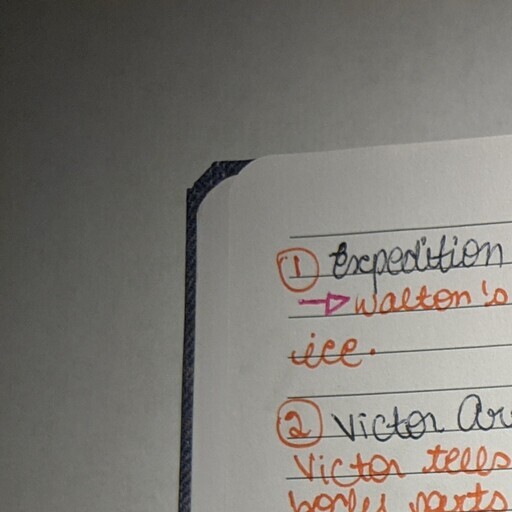 ① Expedition
→ Walton's
ice.
② Victor
Victor tells
parts